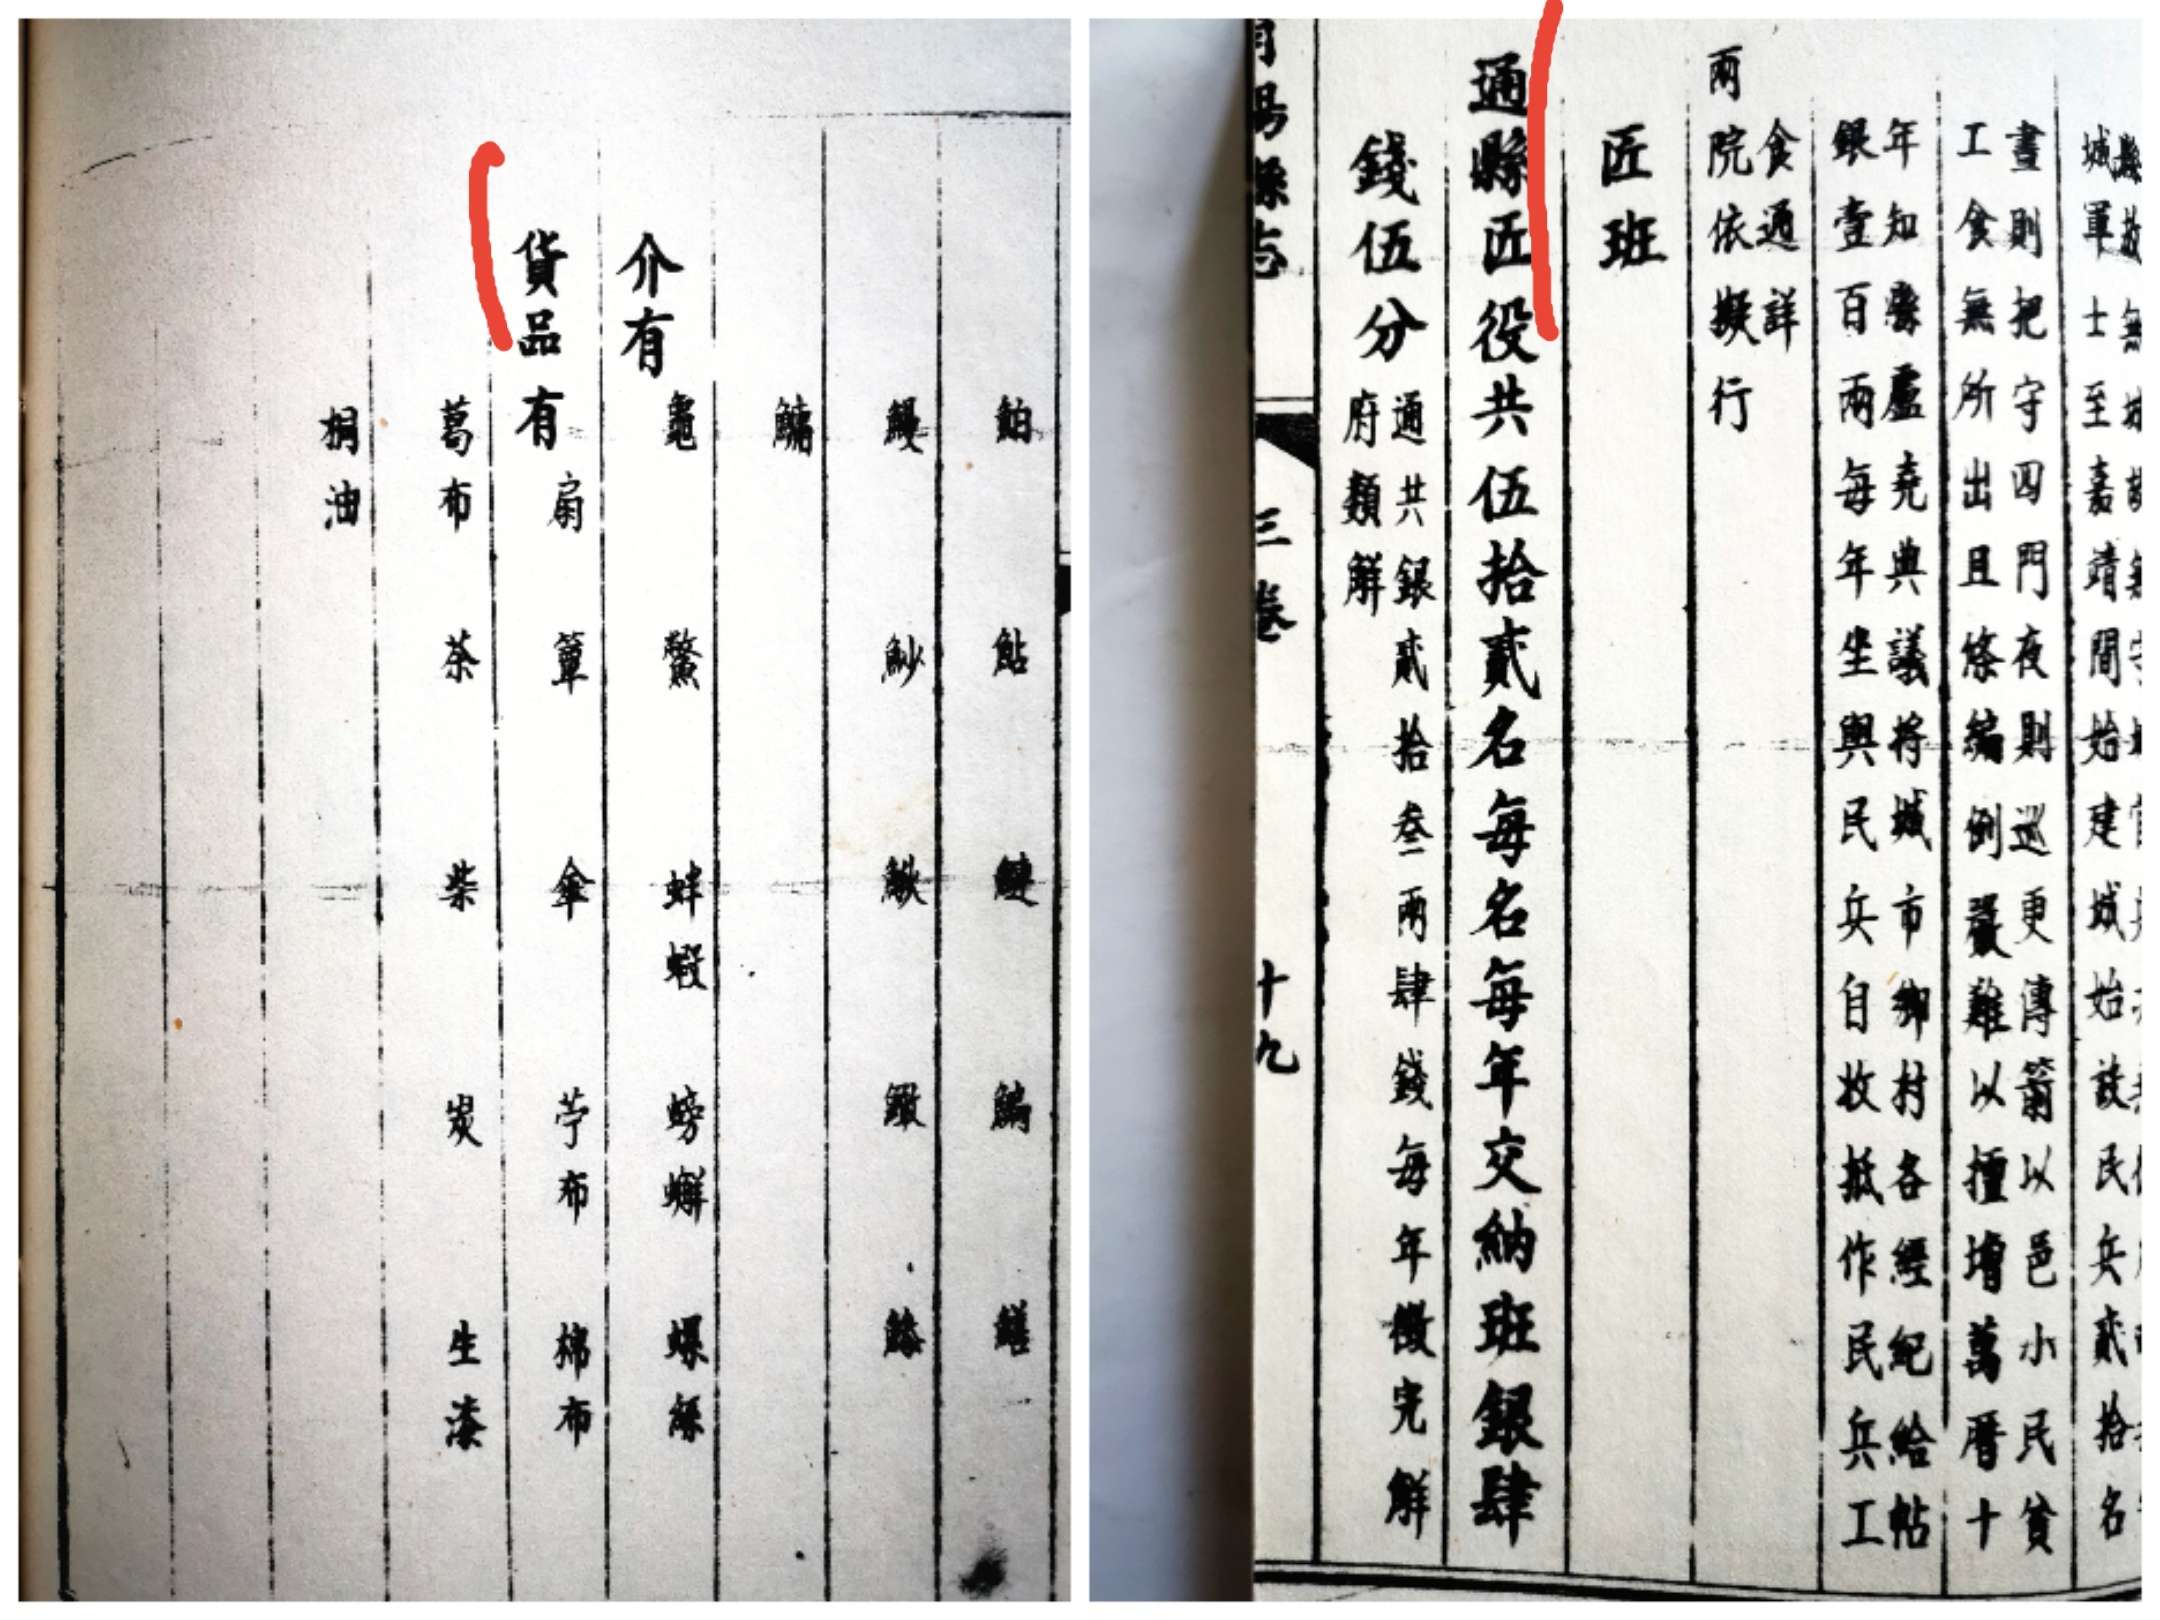 鮊 鮎 鰱 鯿 鱔
鰻 魦 鰍 鱖 鰷
鱅
介有
龜 鱉 蚌 蝦 螃蠏 螺螄
貨品有
扇 簟 傘 苧布 棉布
葛布 茶 柴 炭 生漆
桐油
城軍士至嘉靖間始建城始設民兵貳拾名
晝則把守四門夜則巡更傳箭以邑小民貧
工食無所出且條編例嚴難以擅增萬曆十
年知縣盧堯典議將城市鄉村各經紀給帖
銀壹百兩每年坐與民兵自收抵作民兵工
食通詳
兩院依擬行
匠班
通縣匠役共伍拾貳名每名每年交納班銀肆
錢伍分
通共銀貳拾叁兩肆錢每年徵完解
府類解
縣志
三卷
十九